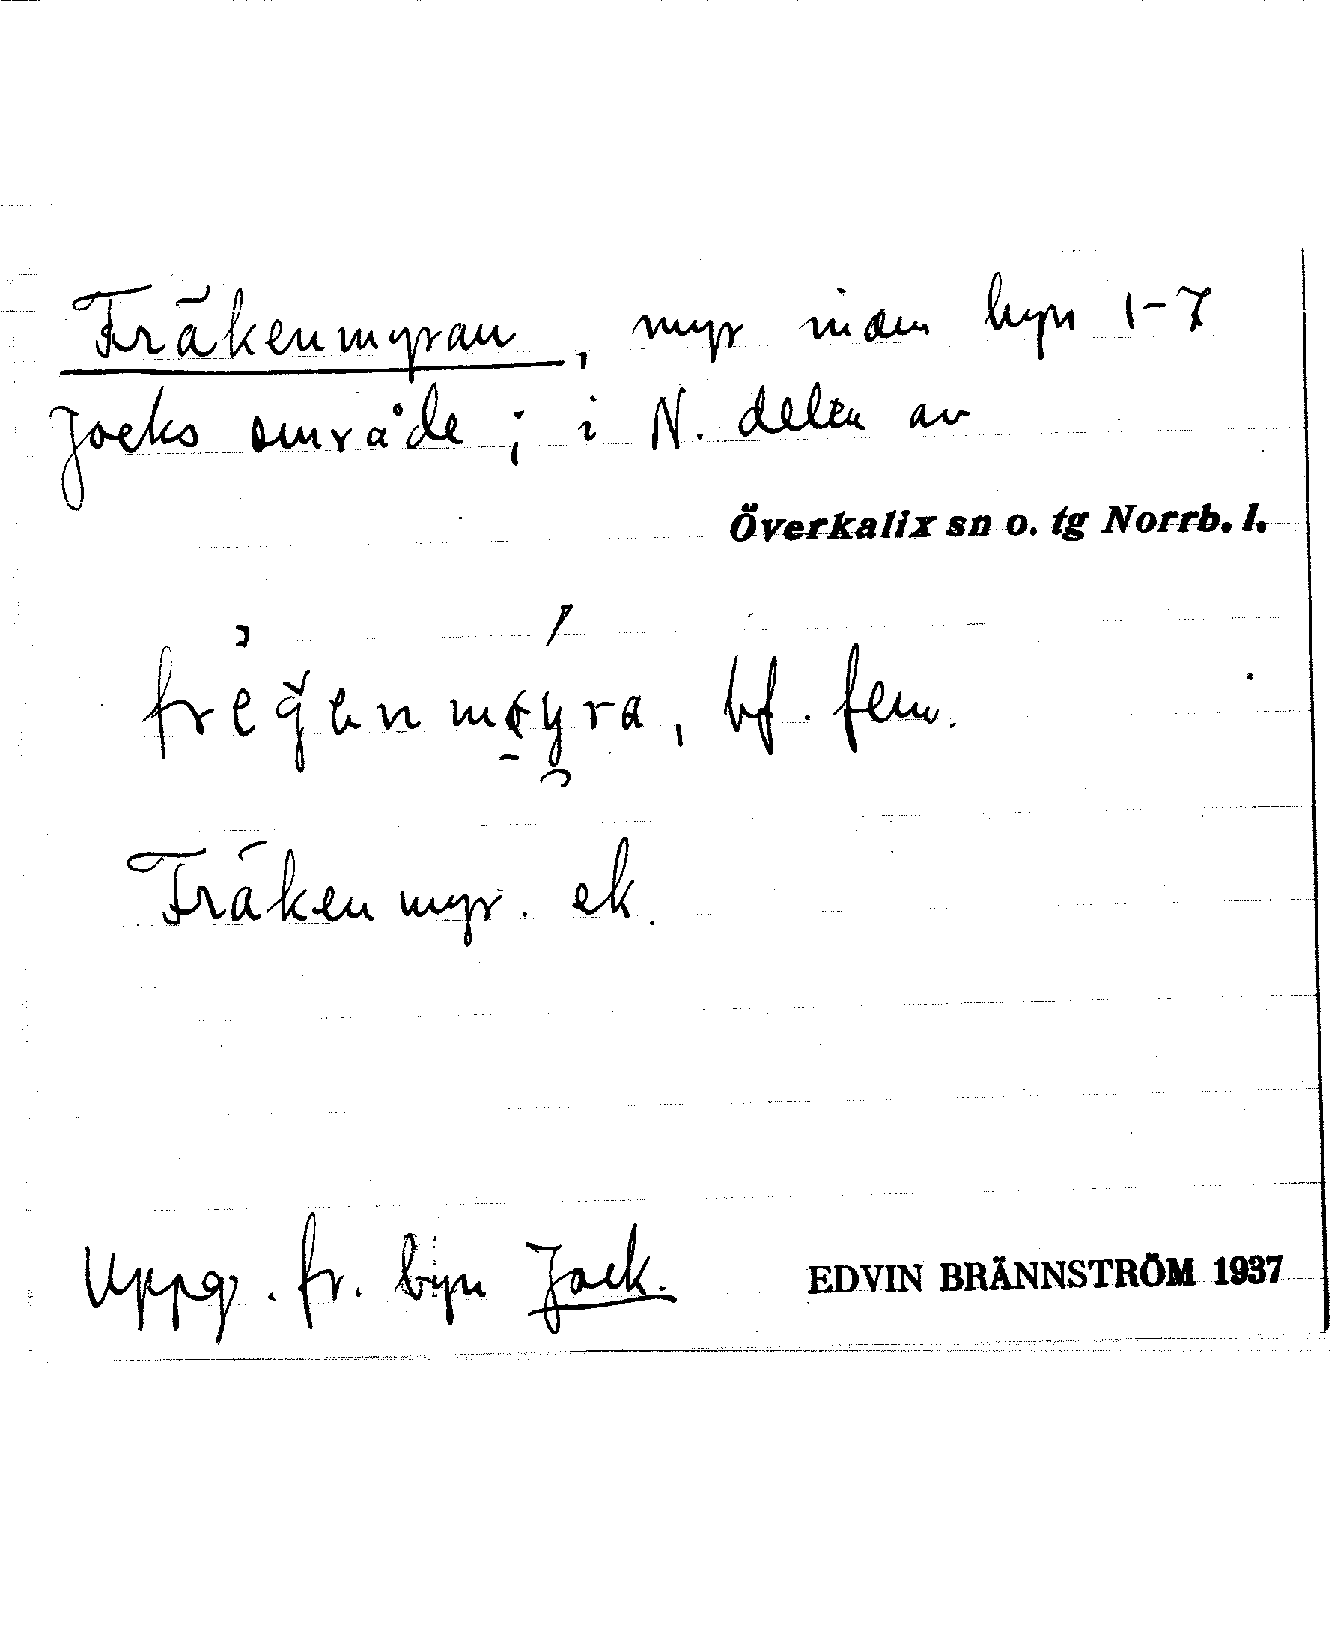 Fräkenmyran, myr inom byn 1-7
Jocks område; i N. delen av
Överkalix sn o. tg Norrb. l.
bf. fem.
Fräkenmyr. ek.
Uppg. fr. byn Jock. EDVIN BRÄNNSTRÖM 1937